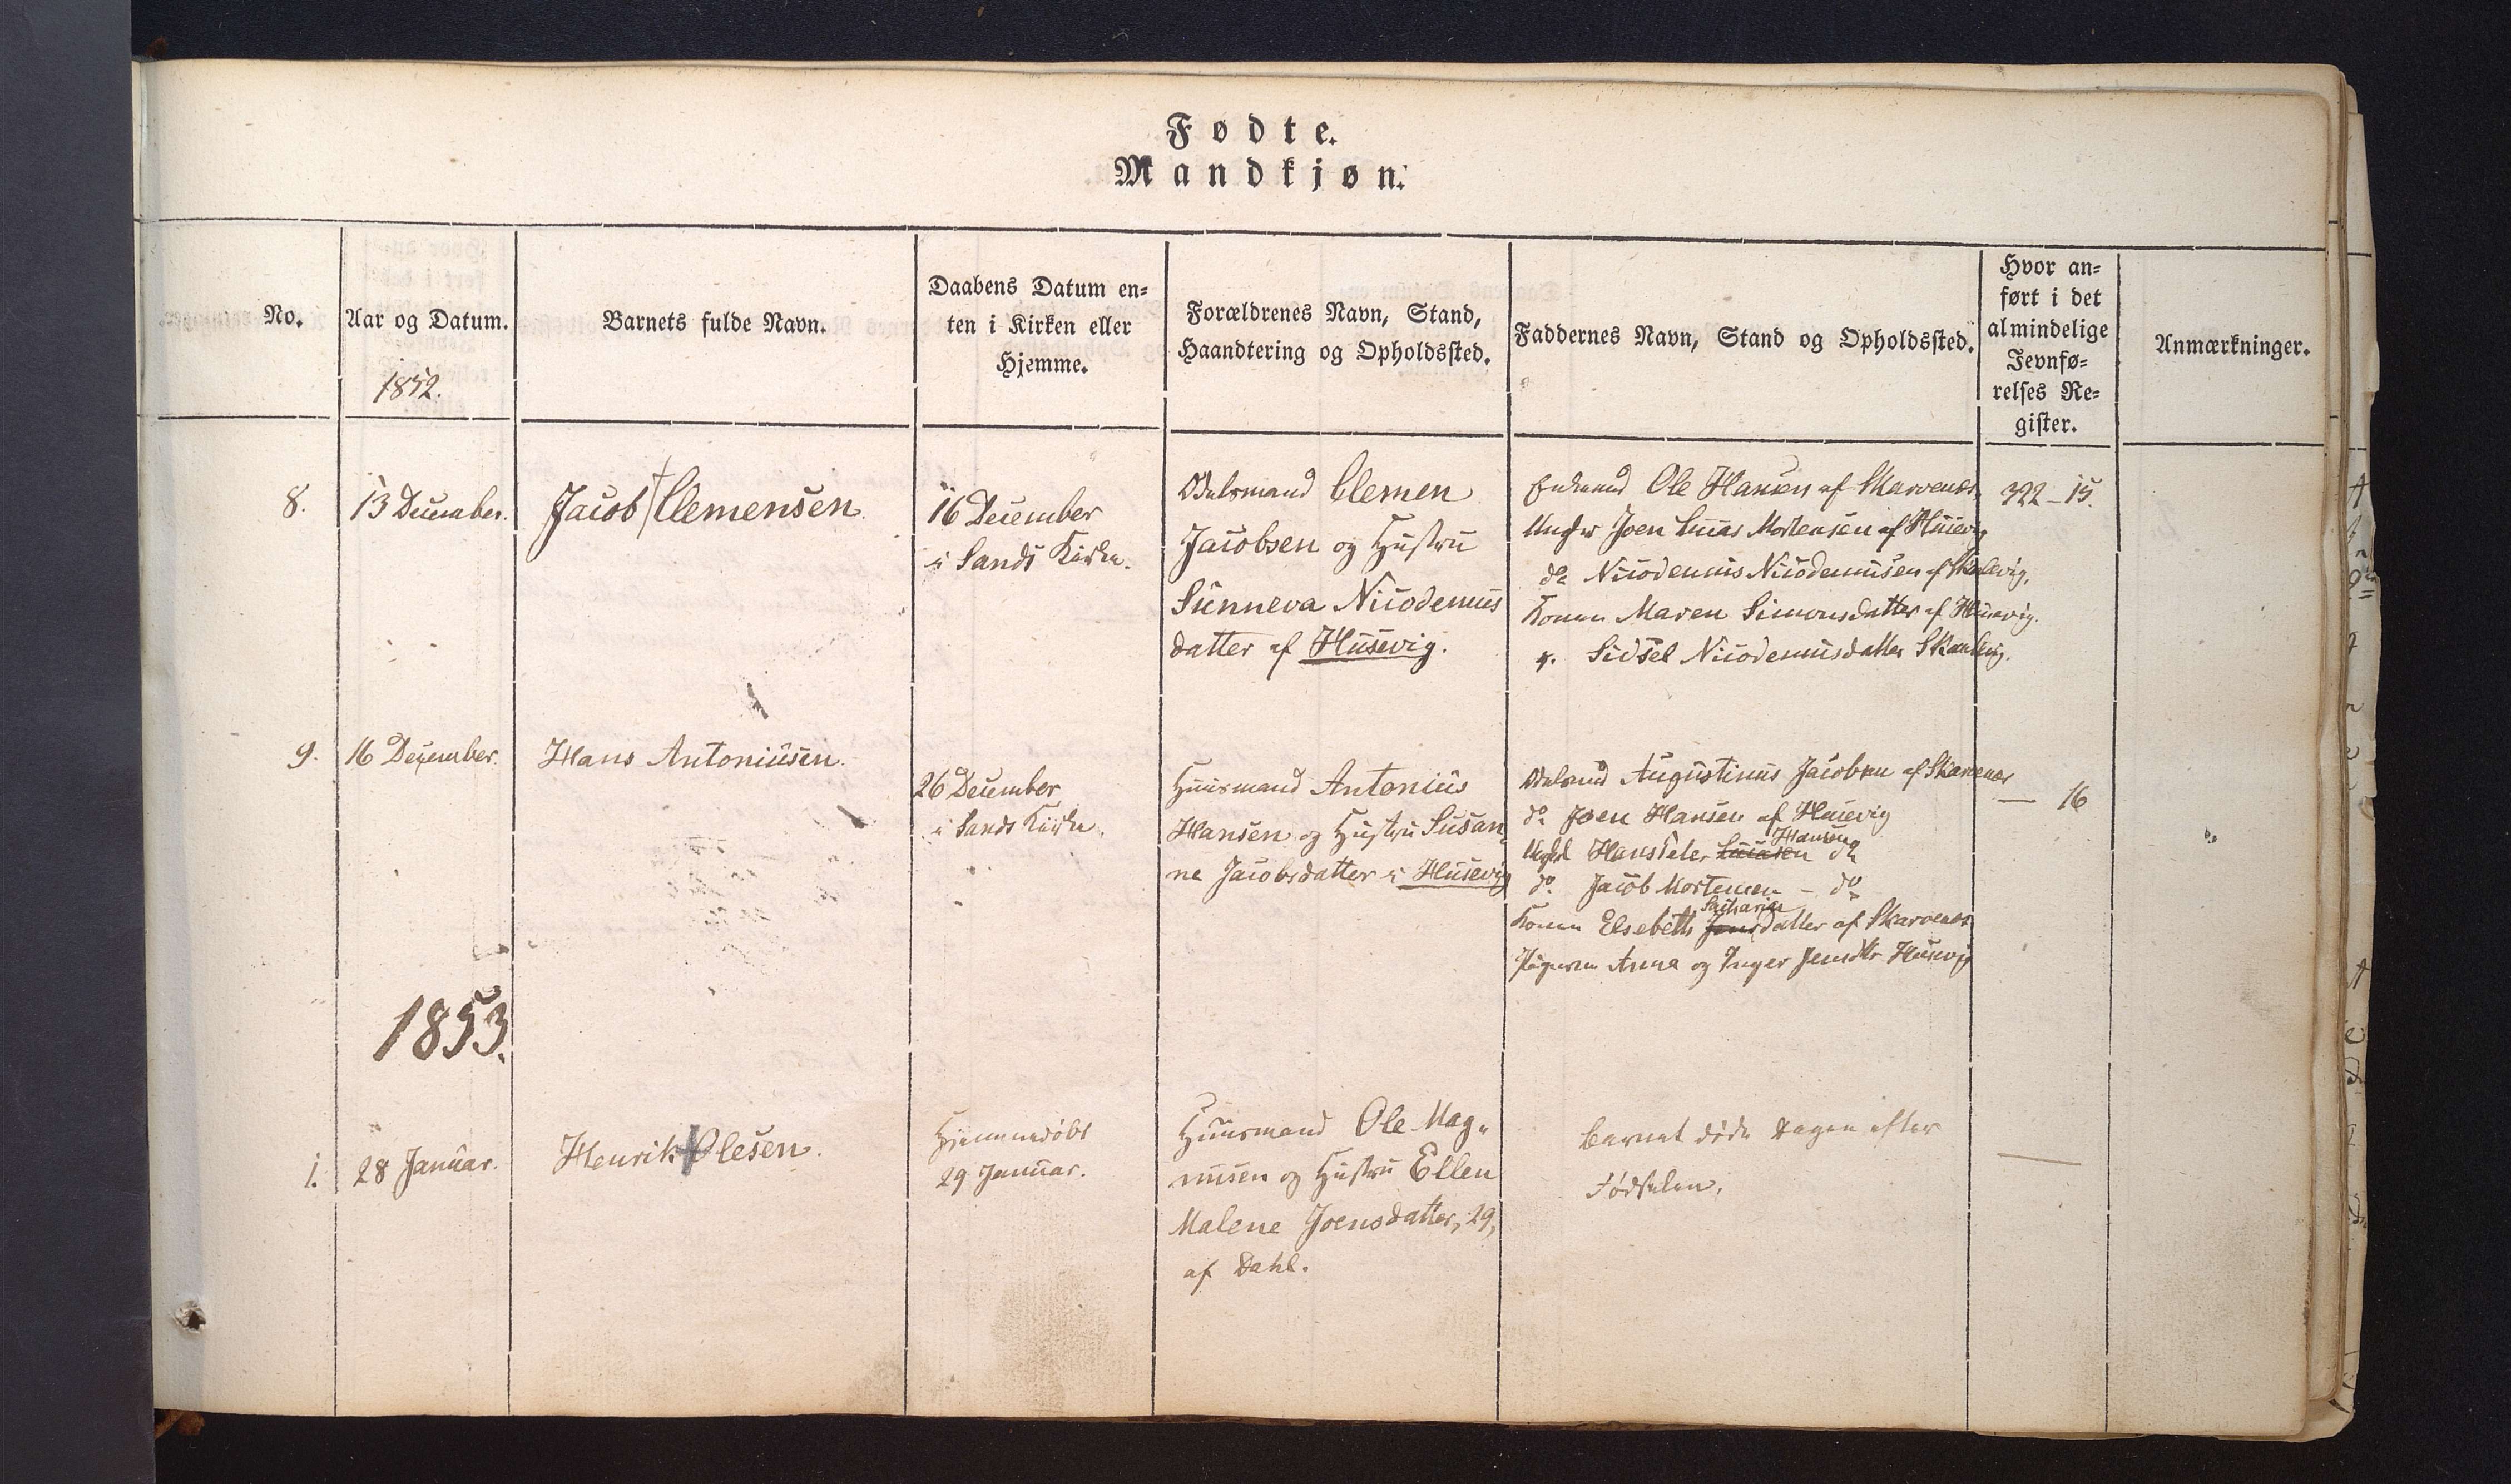 Fødte.
Mandkjøn.
No.
Aar og Datum.
1852.
Barnets fulde Navn.
Daabens Datum en=
ten i Kirken eller
Hjemme.
Forældrenes Navn, Stand,
Haandtering og Opholdssted.
Faddernes Navn, Stand og Opholdssted.
Hvor an=
ført i det
almindelige
Jevnfø=
relses Re=
gister.
Anmærkninger.
8.
13 December.
Jacob Clemensen
16 December
i Sands Kirke.
Odelsmand Clemen
Jacobsen og Hustru
Sunneva Nicodemus
datter af Husevig.
Ole Hansen af Skarvenæs
Joen Lucas Mortensen af Husevig
do Nicodemus Nicodemusen af Skaalevig,
Konen Maren Simonsdatter af Husevig.
Sidsel Nicodemusdatter Skaalevig.
322 - 15.
9.
16 December.
Hans Antoniusen.
26 December
i Sands Kirke.
Huusmand Antonius
Hansen og Hustru Susan
ne Jacobsdatter i Husevig
Augustinus Jacobsen af Skarvenæs
do Joen Hansen af Husevig
Hansen
Hans Peter Lucasen do
do. Jacob Mortensen - do
Zacharias
Konen Elsebeth Jensdatter af Skarvenæs
Pigerne Anna og Inger Jensdtr Husevig
— 16
1853.
1.
28 Januar.
Henrik Olesen.
Hjemmedøbt
29 Januar.
Huusmand Ole Mag=
nusen og Hustru Ellen
Malene Joensdatter, 29,
af Dahl.
Barnet døde Dagen efter
Fødselen.